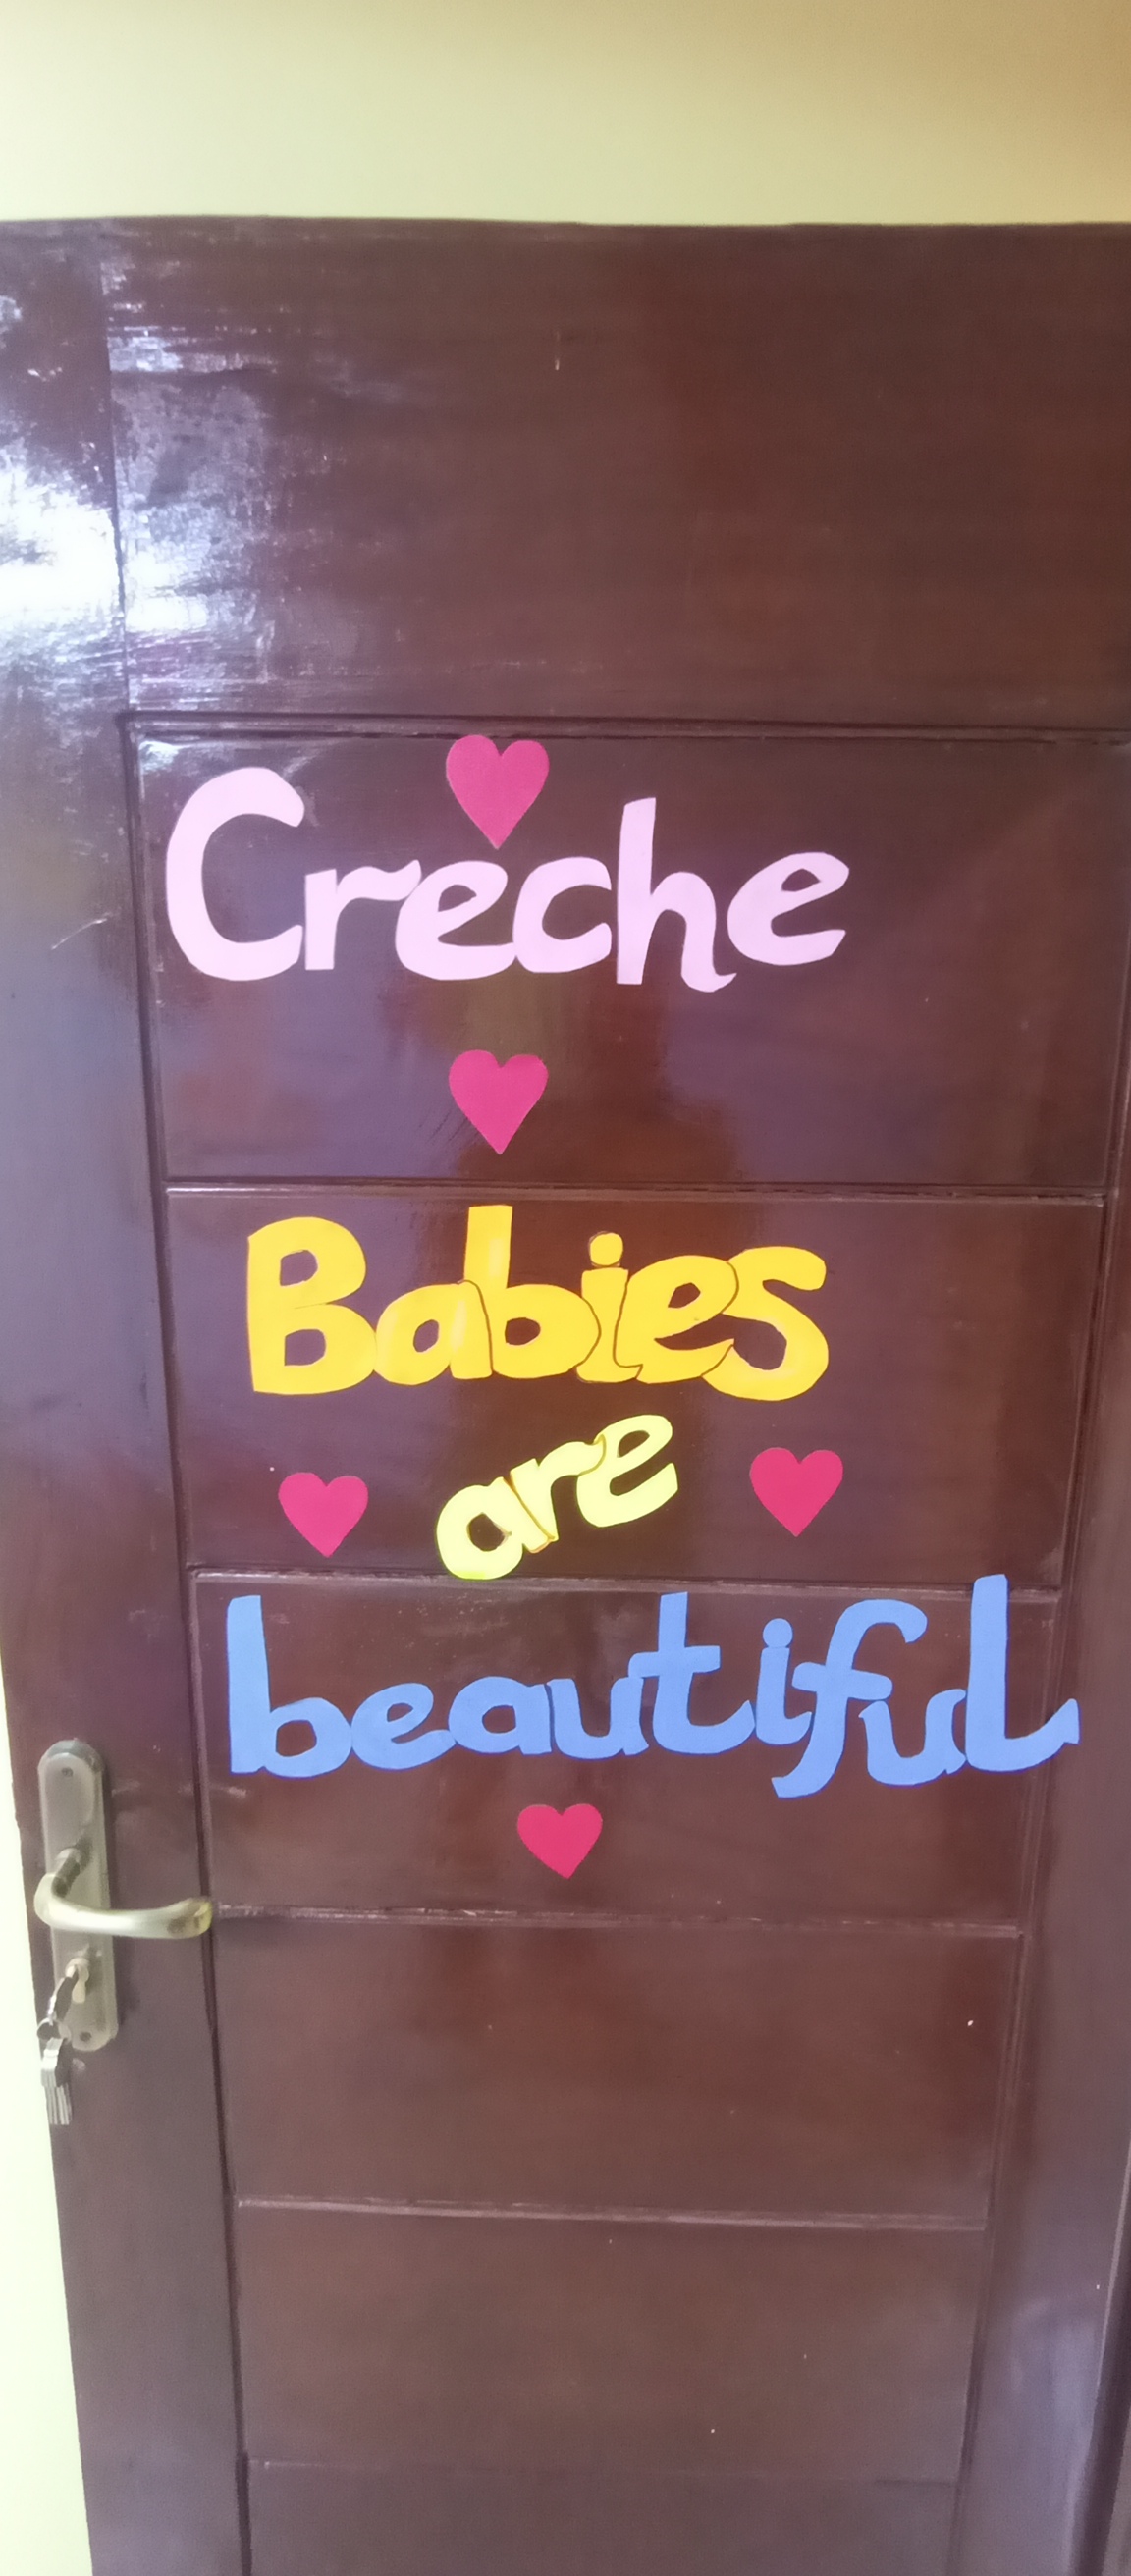 Creche
Babies
are
beautiful